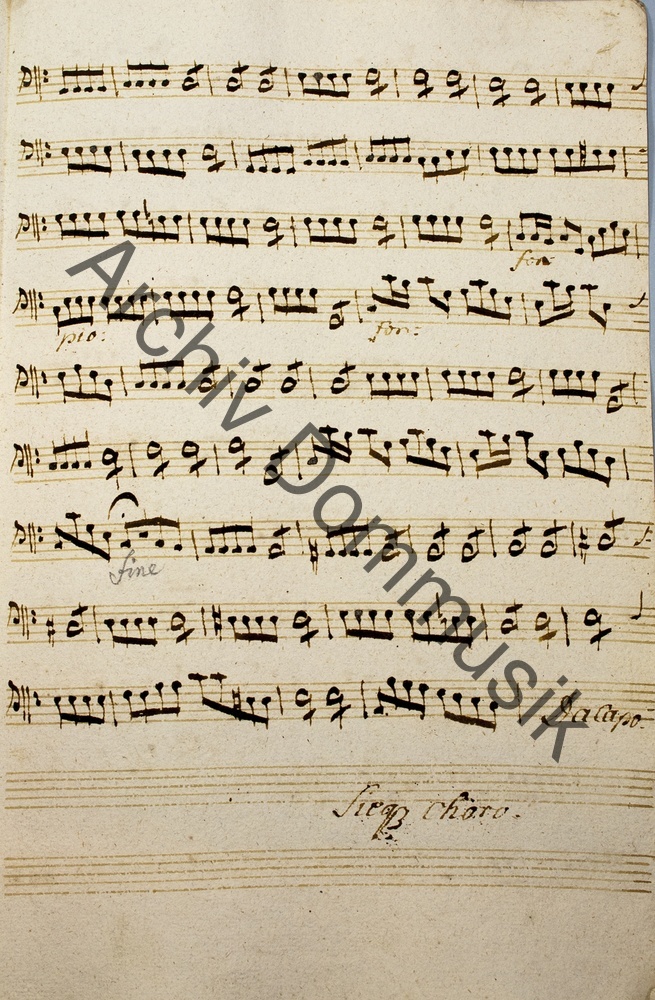 for
pio:
for:
fine
Da Capo.
Siegz Choro.
Archiv Dommusik